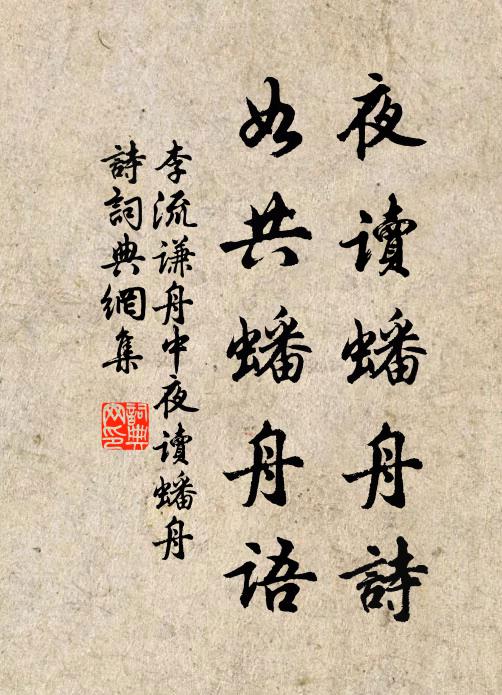 夜讀蟠舟詩
如共蟠舟语
李流谦舟中夜讀蟠舟
詩詞典網集
詞典
网印